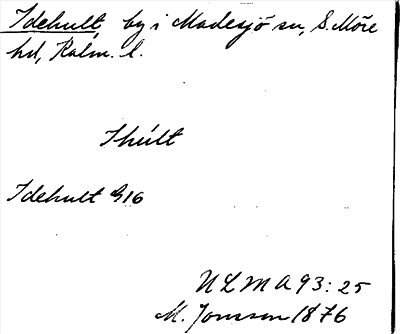 Idehult, by i Madesjö sn, S. Möre
hd, Kalm. l.
Ihult
Idehult G16
ULMA 93:25
M. Jonsson 1876